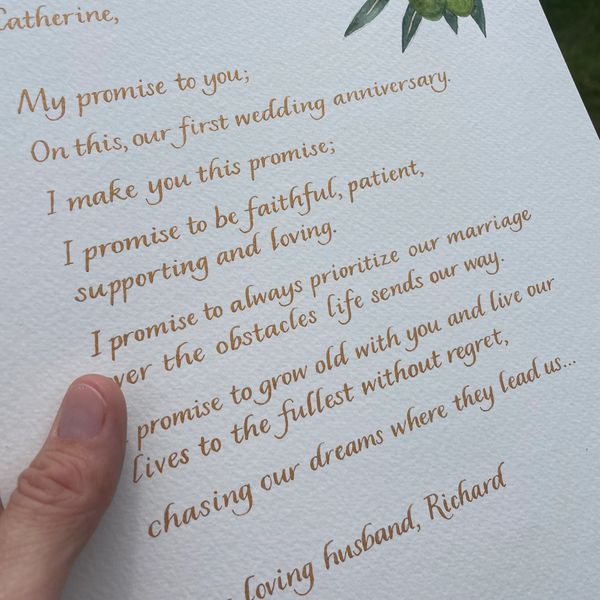 Catherine,
My promise to you;
On this, our first wedding anniversary.
I make you this promise;
I promise to be faithful, patient,
supporting and loving.
I promise to always prioritize our marriage
over the obstacles life sends our way.
promise to grow old with you and live our
lives to the fullest without regret,
chasing our dreams where they lead us...
loving husband, Richard